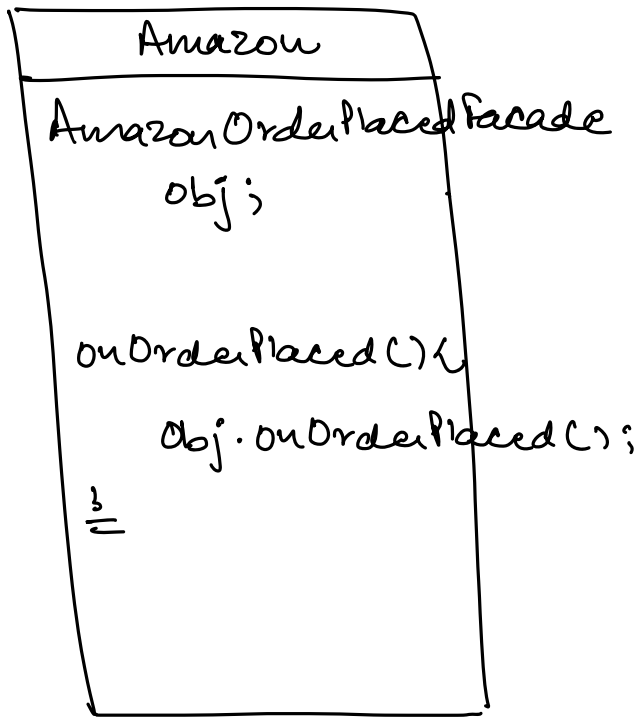 Amazon
AmazonOrderPlacedFacade
obj;
onOrderPlaced(){
obj.onOrderPlaced();
}